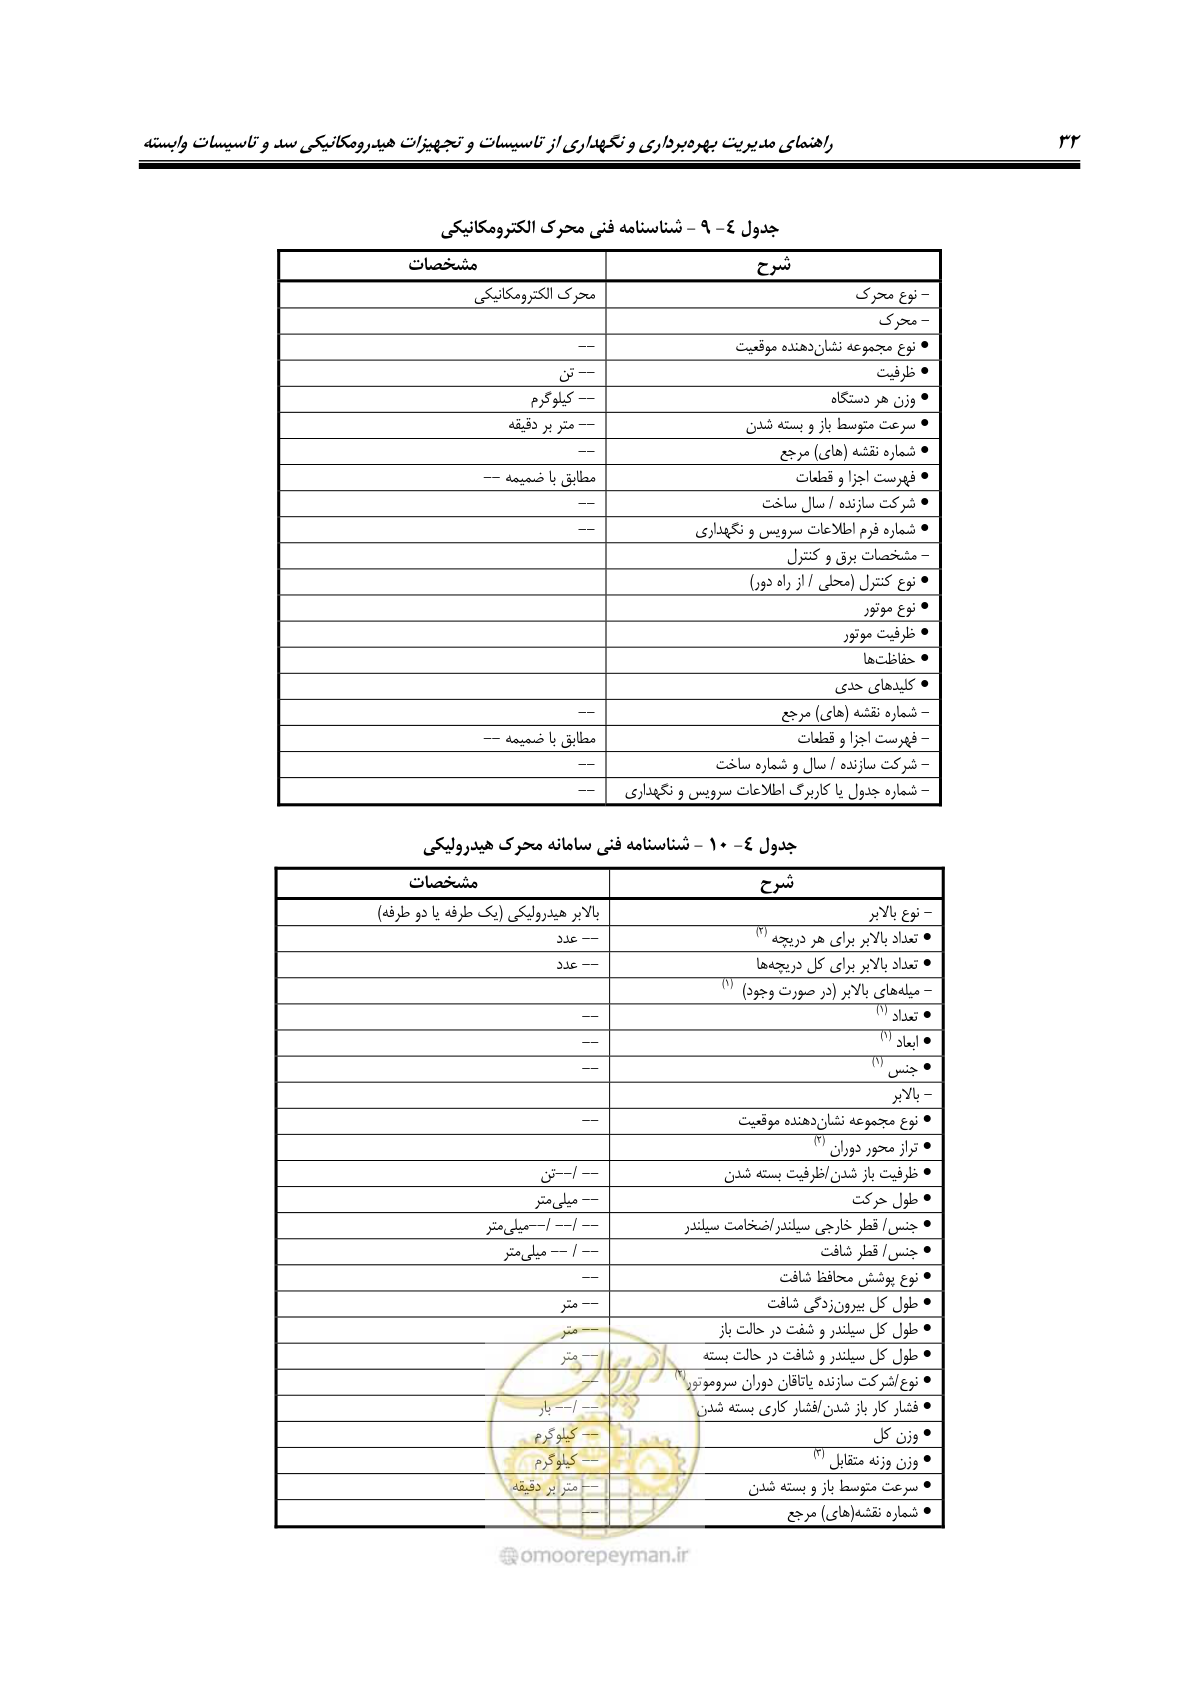 ۳۲ راهنمای مدیریت بهره‌برداری و نگهداری از تاسیسات و تجهیزات هیدرومکانیکی سد و تاسیسات وابسته
جدول ٤- ۹ - شناسنامه فنی محرک الکترومکانیکی
شرح مشخصات
- نوع محرک محرک الکترومکانیکی
- محرک
• نوع مجموعه نشان‌دهنده موقعیت --
• ظرفیت -- تن
• وزن هر دستگاه -- کیلوگرم
• سرعت متوسط باز و بسته شدن -- متر بر دقیقه
• شماره نقشه (های) مرجع --
• فهرست اجزا و قطعات مطابق با ضمیمه --
• شرکت سازنده / سال ساخت --
• شماره فرم اطلاعات سرویس و نگهداری --
- مشخصات برق و کنترل
• نوع کنترل (محلی / از راه دور)
• نوع موتور
• ظرفیت موتور
• حفاظت‌ها
• کلیدهای حدی
- شماره نقشه (های) مرجع --
- فهرست اجزا و قطعات مطابق با ضمیمه --
- شرکت سازنده / سال و شماره ساخت --
- شماره جدول یا کاربرگ اطلاعات سرویس و نگهداری --
جدول ٤- ۱۰ - شناسنامه فنی سامانه محرک هیدرولیکی
شرح مشخصات
- نوع بالابر بالابر هیدرولیکی (یک طرفه یا دو طرفه)
• تعداد بالابر برای هر دریچه (۲) -- عدد
• تعداد بالابر برای کل دریچه‌ها -- عدد
- میله‌های بالابر (در صورت وجود) (۱)
• تعداد (۱) --
• ابعاد (۱) --
• جنس (۱) --
- بالابر
• نوع مجموعه نشان‌دهنده موقعیت --
• تراز محور دوران (۲)
• ظرفیت باز شدن/ظرفیت بسته شدن -- /--تن
• طول حرکت -- میلی‌متر
• جنس/ قطر خارجی سیلندر/ضخامت سیلندر -- /-- /--میلی‌متر
• جنس/ قطر شافت -- / -- میلی‌متر
• نوع پوشش محافظ شافت --
• طول کل بیرون‌زدگی شافت -- متر
• طول کل سیلندر و شفت در حالت باز -- متر
• طول کل سیلندر و شافت در حالت بسته -- متر
• نوع/شرکت سازنده یاتاقان دوران سروموتور(۲) --
• فشار کار باز شدن/فشار کاری بسته شدن -- /-- بار
• وزن کل -- کیلوگرم
• وزن وزنه متقابل (۳) -- کیلوگرم
• سرعت متوسط باز و بسته شدن -- متر بر دقیقه
• شماره نقشه(های) مرجع --
امور پیمان
@omoorepeyman.ir